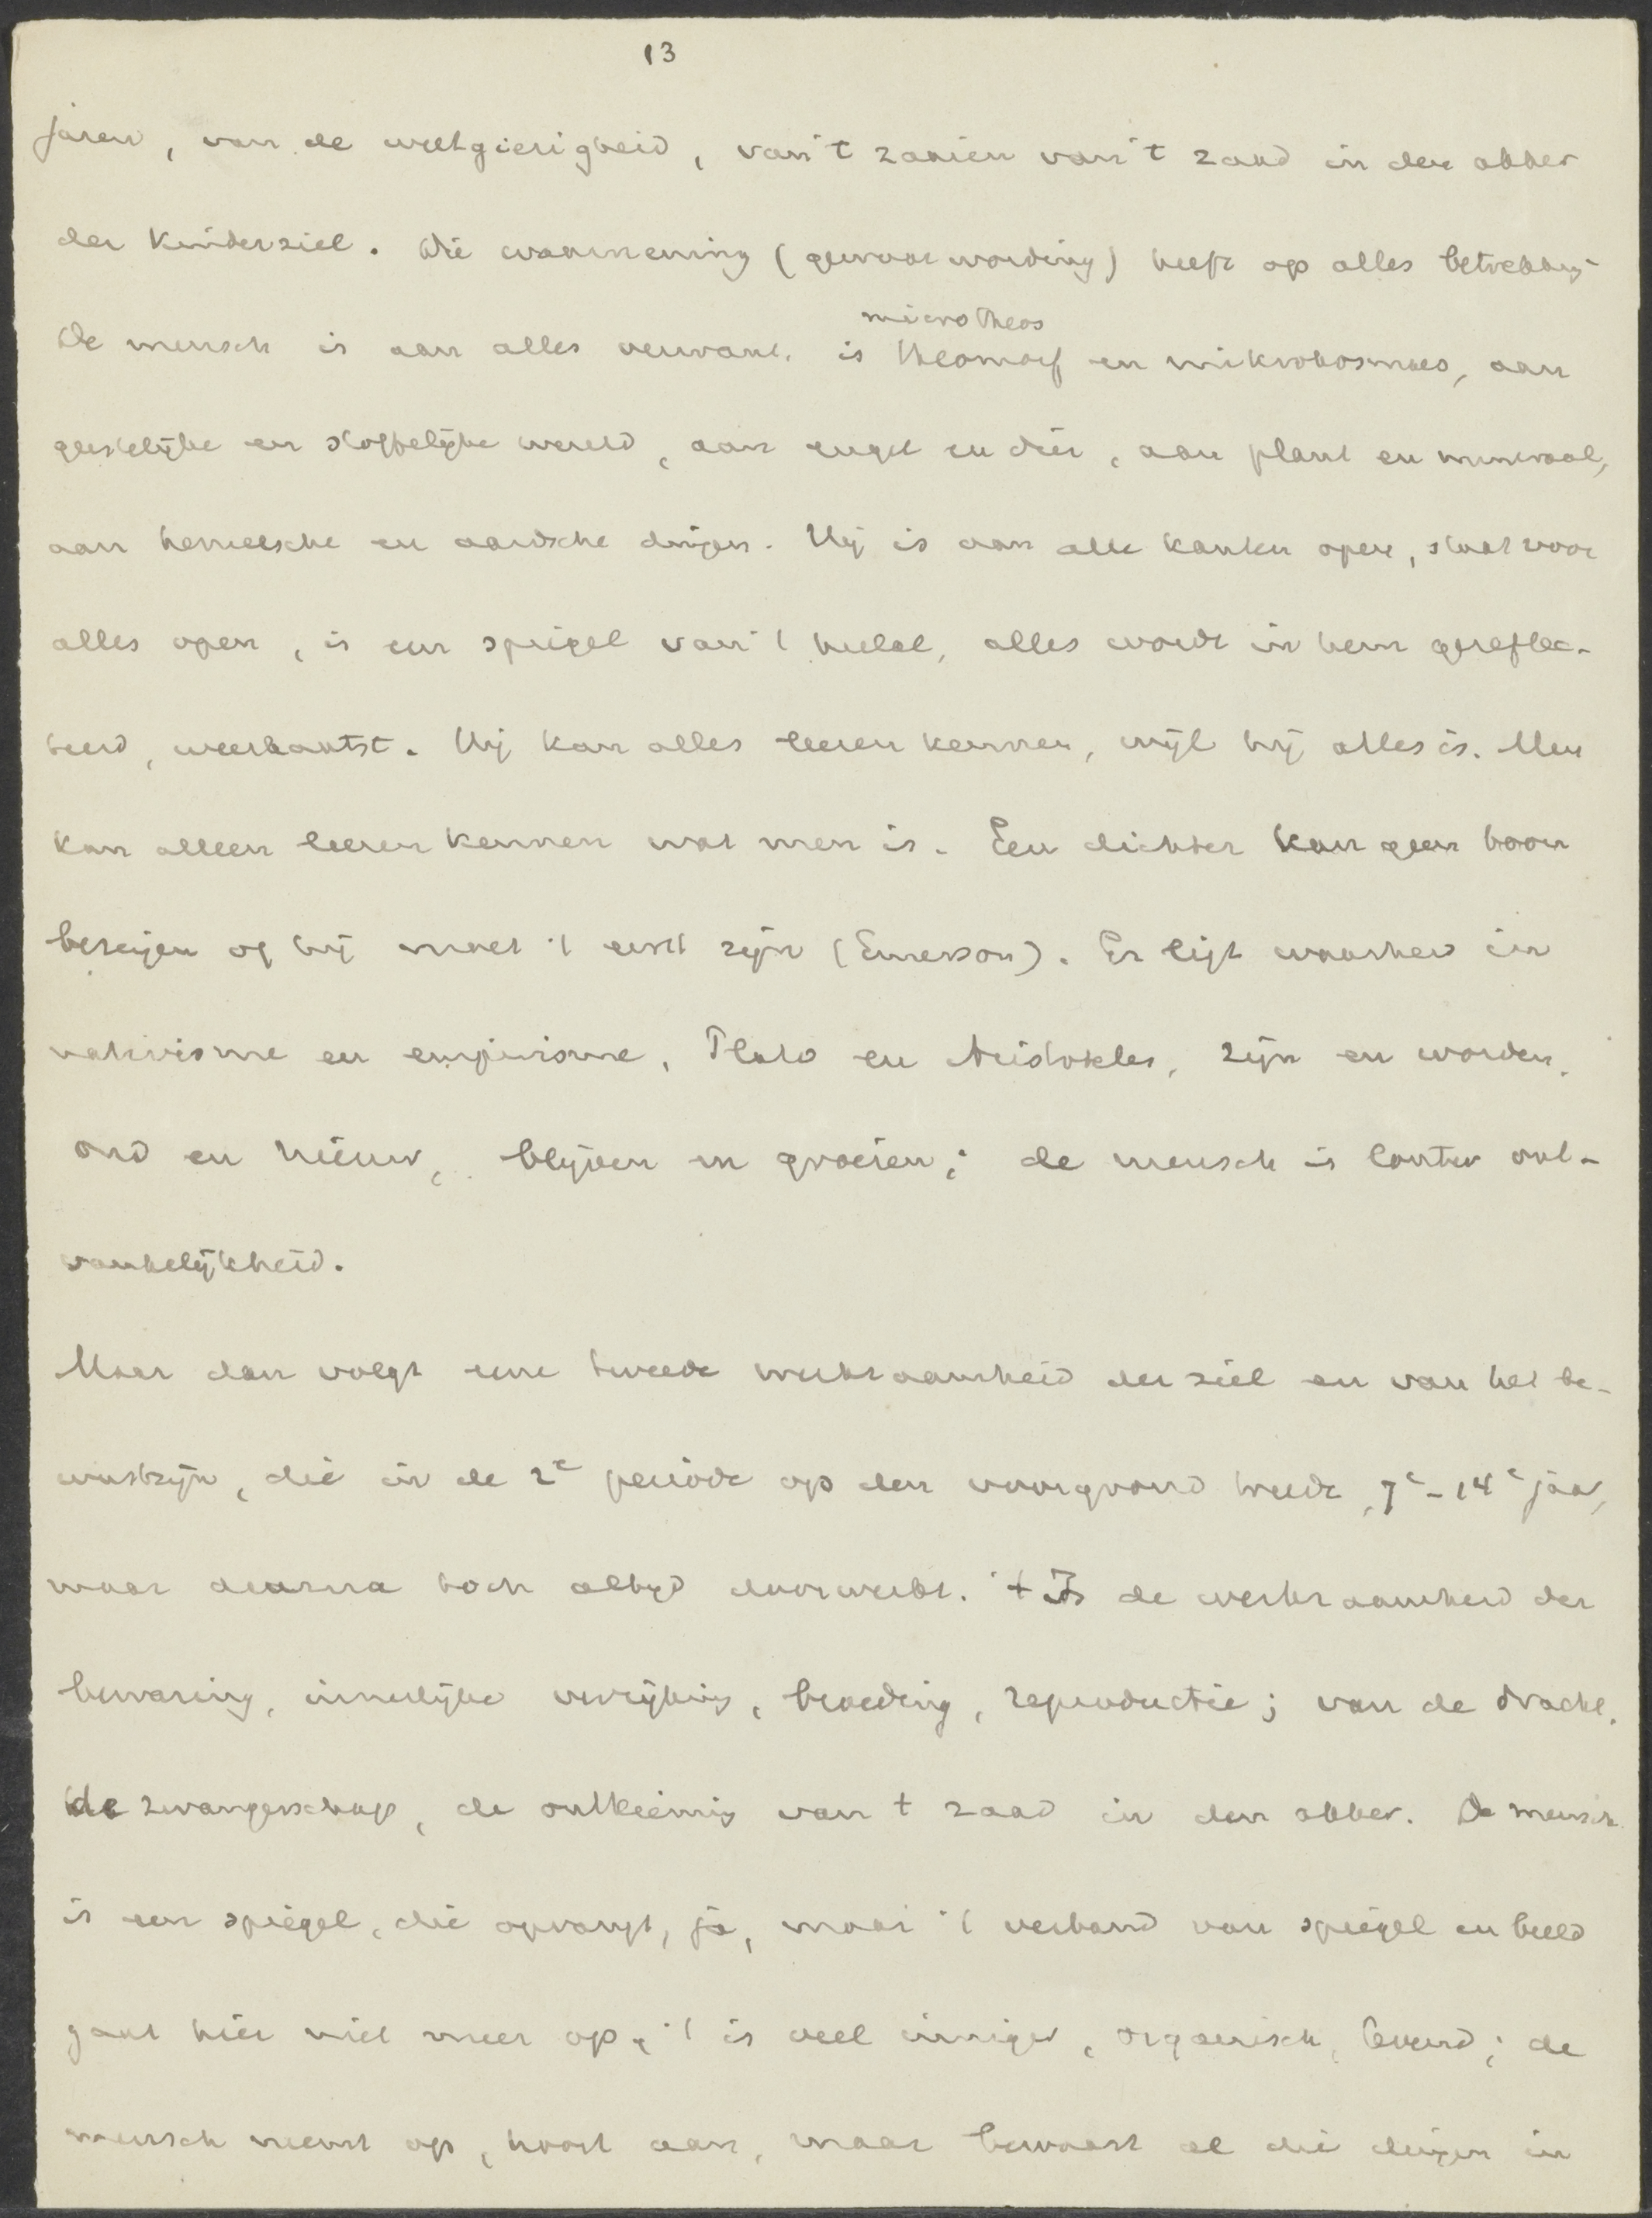 13
jaren, van de weetgierigheid, van 't zaaien van 't zaad in den akker
der kinderziel. Die waarneming (gewaarwording) heeft op alles betrekking
microtheos
De mensch is aan alles verwant, is theomorf en mikrokosmos, aan
geestelijke en stoffelijke wereld, aan engel en dier, aan plant en mineraal,
aan hemelsche en aardsche dingen. Hij is aan alle kanten open, staat voor
alles open, is een spiegel van 't heelal, alles wordt in hem gereflec-
teerd, weerkaatst. Hij kan alles leeren kennen, wijl hij alles is. Men
kan alleen leeren kennen wat men is. Een dichter kan geen boom
bezingen of hij moet 't eerst zijn (Emerson). Er ligt waarheid in
nativisme en empirisme, Plato en Aristoteles, zijn en worden,
oud en nieuw, blijven en groeien; de mensch is louter ont-
vankelijkheid.
Maar dan volgt eene tweede werkzaamheid der ziel en van het be-
wustzijn, die in de 2e periode op den voorgrond treedt, 7e-14e jaar,
maar daarna toch altijd doorwerkt. 't Is de werkzaamheid der
bewaring, innerlijke verrijking, broeding, reproductie; van de dracht,
de zwangerschap, de ontkieming van t zaad in den akker. De mensch
is een spiegel, die opvangt, ja, maar 't verband van spiegel en beeld
gaat hier niet meer op, 't is veel inniger, organisch, levend; de
mensch neemt op, hoort aan, maar bewaart al die dingen in